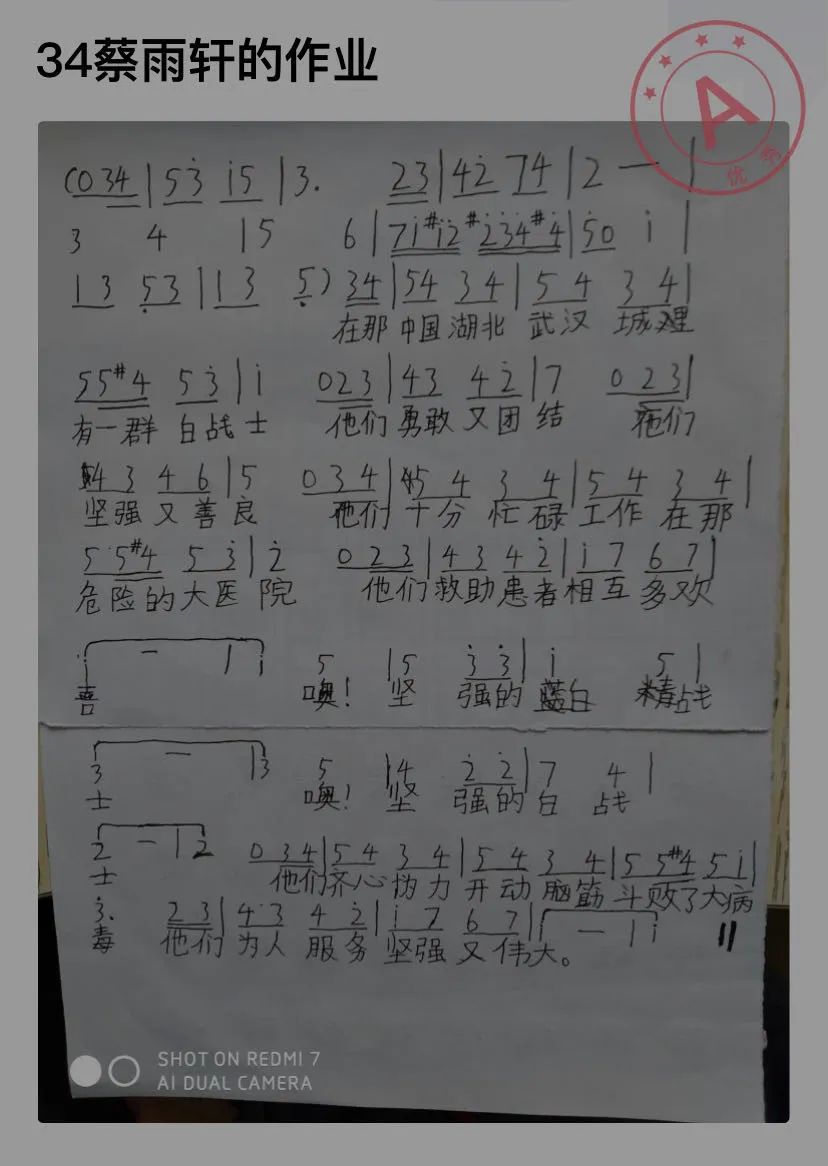 34蔡雨轩的作业
A
优秀
(0 34 | 5 3̇ i̇ 5 | 3. 2 3 | 4 2̇ 7 4 | 2 — |
3 4 | 5 6 | 7 i̇ #i̇ 2̇ #2̇ 3̇ 4̇ #4̇ | 5̇ 0 i̇ |
1 3 5̣ 3 | 1 3 5̣) 3 4 | 5 4 3 4 | 5 4 3 4 |
在那 中国 湖北 武汉 城里
5 5 #4 5 3̇ | i̇ 0 2 3 | 4 3 4 2̇ | 7 0 2 3 |
有一群 白战士 他们 勇敢 又团结 他们
4 3 4 6 | 5 0 3 4 | 5 4 3 4 | 5 4 3 4 |
坚强又善良 他们 十分 忙碌 工作 在那
5 5 #4 5 3̇ | 2̇ 0 2 3 | 4 3 4 2̇ | i̇ 7 6 7 |
危险的大医院 他们救助患者相互多欢
i̇ — | i̇ 5 | 5 3̇ 3̇ | i̇ 5 |
喜 噢! 坚 强的 战
3 — | 3 5 | 4 2̇ 2̇ | 7 4 |
士 噢! 坚 强的白 战
2 — | 2 0 3 4 | 5 4 3 4 | 5 4 3 4 | 5 5 #4 5 i̇ |
士 他们齐心协力 开动 脑筋 斗败了大病
3̇. 2 3 | 4 3 4 2̇ | i̇ 7 6 7 | i̇ — | i̇ ‖
毒 他们 为人 服务 坚强 又 伟大。
SHOT ON REDMI 7
AI DUAL CAMERA